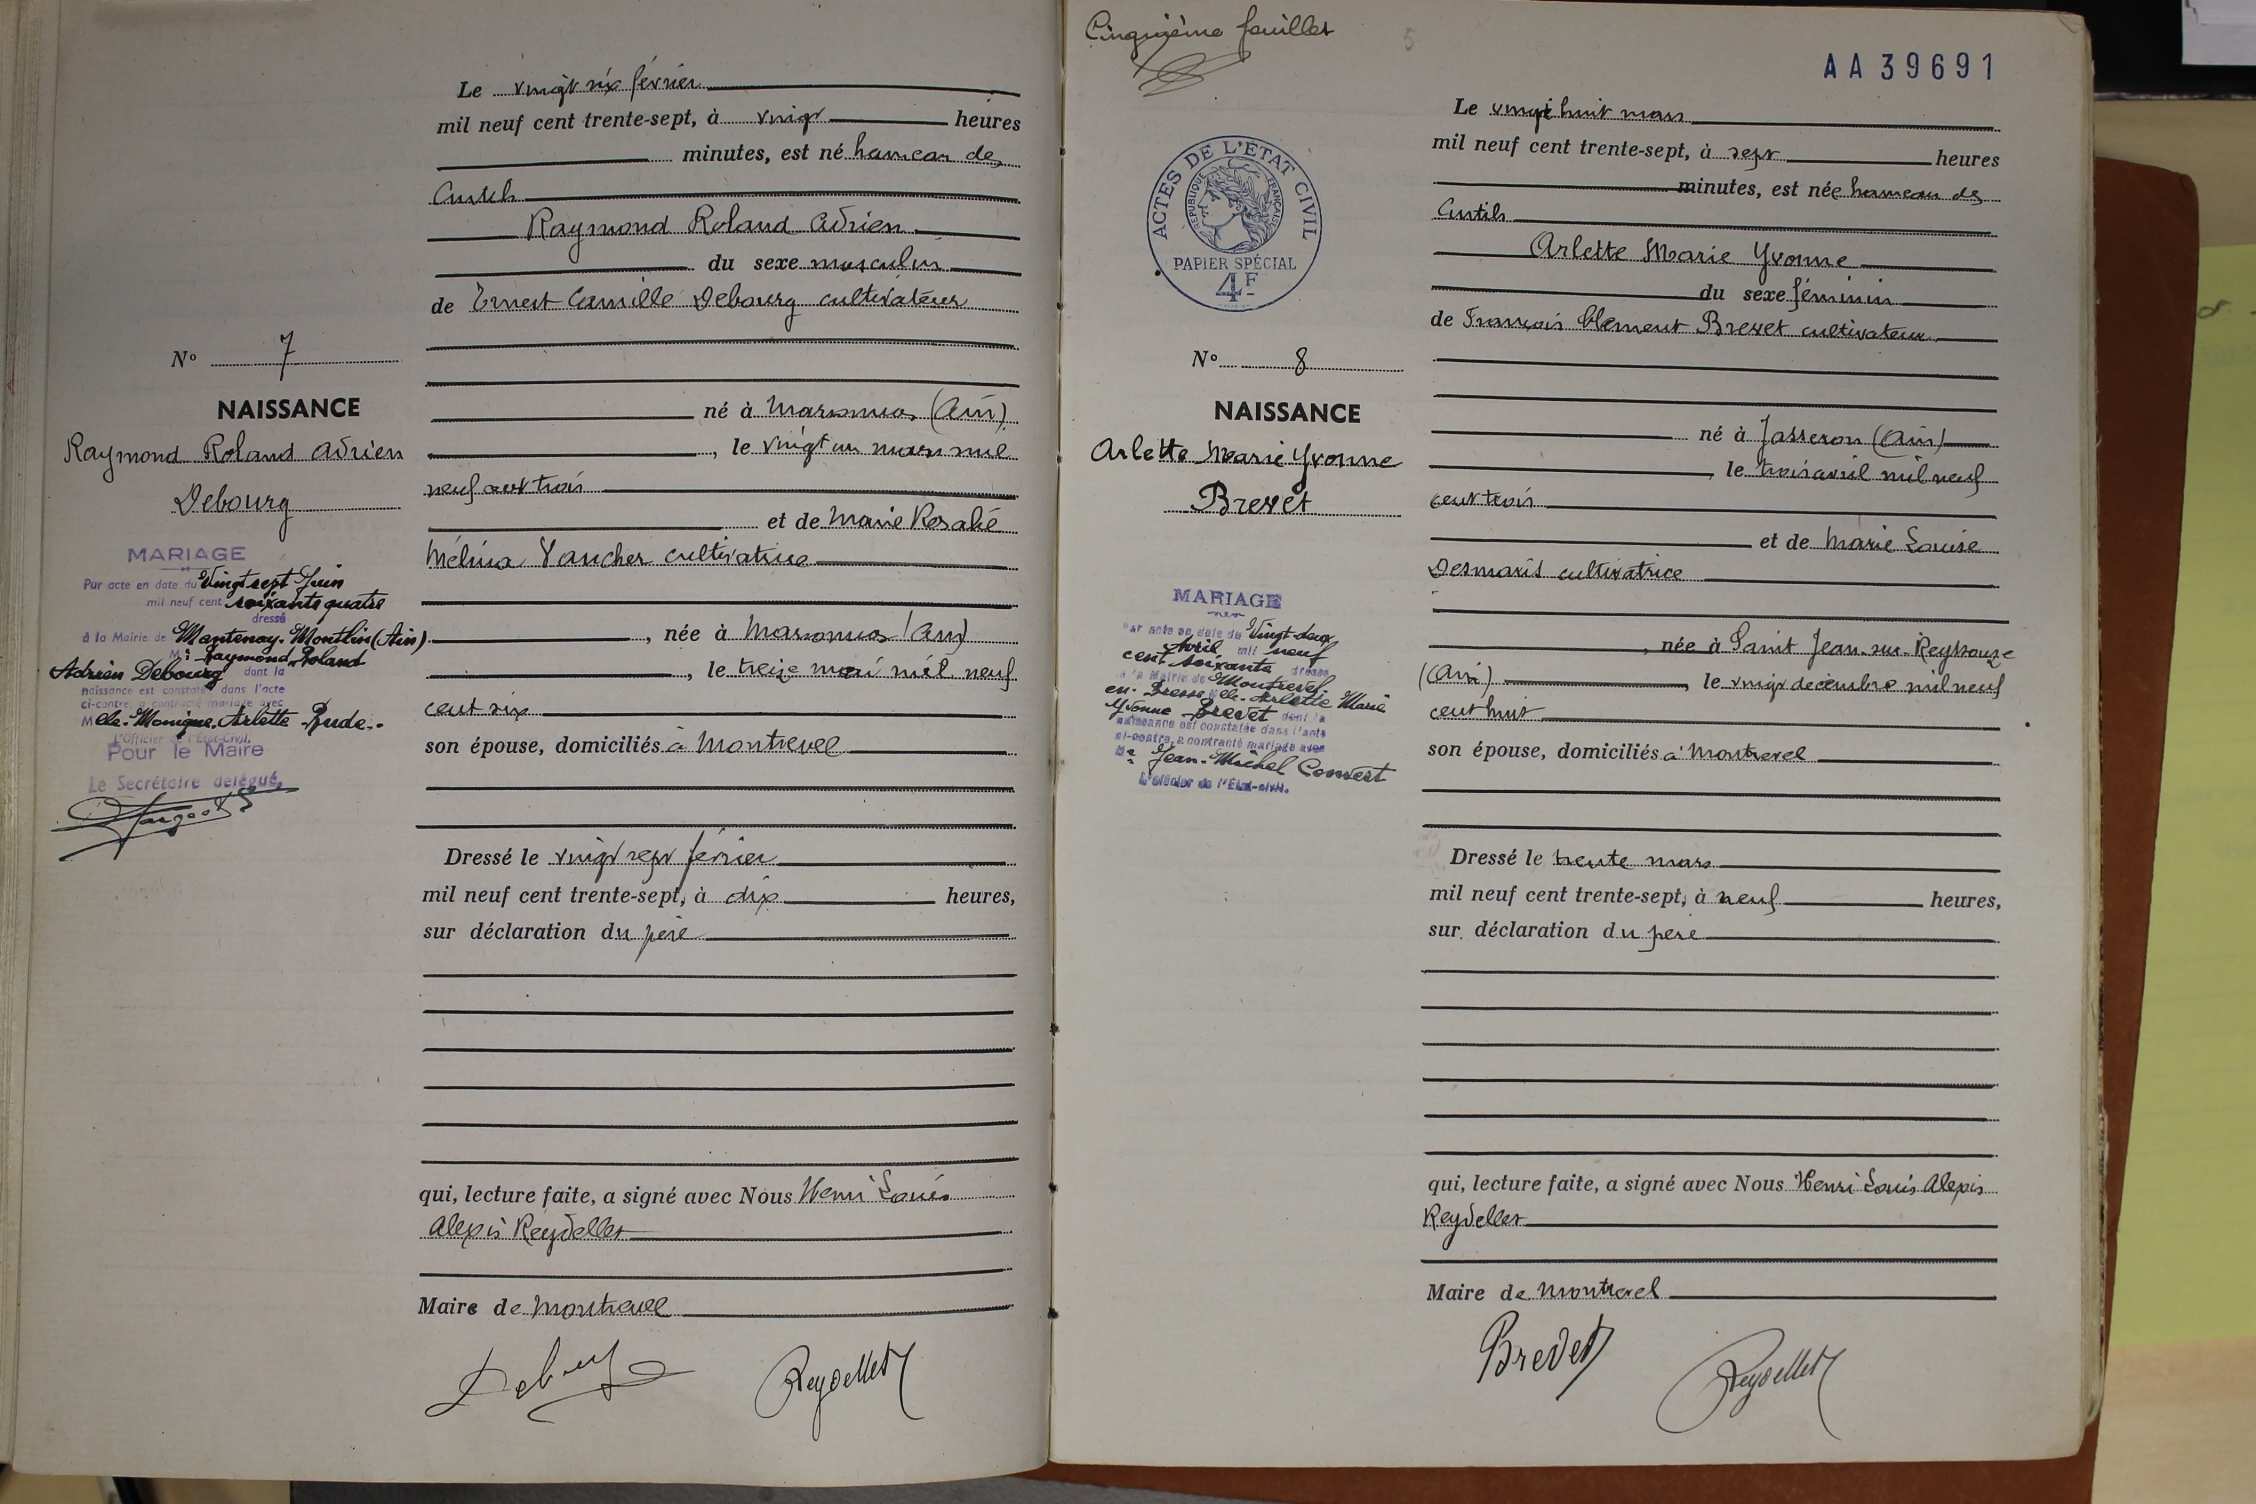 Le vingt six février
mil neuf cent trente-sept, à vingt heures
minutes, est né hameau des
Cutils
Raymond Roland Adrien
du sexe masculin
de Ernest Camille Debourg cultivateur
né à Marsonnas (Ain)
, le vingt un mars mil
neuf cent trois
et de Marie Rosalie
Mélina Vaucher cultivatrice
, née à Marsonnas (Ain)
, le treize mai mil neuf
cent six
son épouse, domiciliés à Montrevel
Dressé le vingt sept février
mil neuf cent trente-sept, à dix heures,
sur déclaration du père
qui, lecture faite, a signé avec Nous Henri Louis
Alexis Reydellet
Maire de Montrevel
Debourg Reydellet
N° 7
NAISSANCE
Raymond Roland Adrien
Debourg
MARIAGE
Par acte en date du Vingt sept Juin
mil neuf cent soixante quatre
dressé
à la Mairie de Mantenay-Montlin (Ain)
Mr Raymond Roland
Adrien Debourg dont la
naissance est constatée dans l'acte
ci-contre, a contracté mariage avec
Melle Monique Arlette Rude
L'Officier de l'Etat-Civil,
Pour le Maire
Le Secrétaire délégué,
Cinquième feuillet
5
AA39691
ACTES DE L'ETAT CIVIL
REPUBLIQUE FRANÇAISE
PAPIER SPÉCIAL
4F
Le vingt huit mars
mil neuf cent trente-sept, à sept heures
minutes, est née hameau des
Cutils
Arlette Marie Yvonne
du sexe féminin
de François Clément Brevet cultivateur
né à Jasseron (Ain)
, le trois avril mil neuf
cent trois
et de Marie Louise
Desmaris cultivatrice
, née à Saint Jean-sur-Reyssouze
(Ain) , le vingt décembre mil neuf
cent huit
son épouse, domiciliés à Montrevel
Dressé le trente mars
mil neuf cent trente-sept, à neuf heures,
sur déclaration du père
qui, lecture faite, a signé avec Nous Henri Louis Alexis
Reydellet
Maire de Montrevel
Brevet Reydellet
N° 8
NAISSANCE
Arlette Marie Yvonne
Brevet
MARIAGE
Par acte en date du Vingt-deux
Avril mil neuf
cent soixante dressé
à la Mairie de Montrevel
en-Bresse Melle Arlette Marie
Yvonne Brevet dont la
naissance est constatée dans l'acte
ci-contre, a contracté mariage avec
Mr Jean-Michel Convert
L'officier de l'Etat-civil.